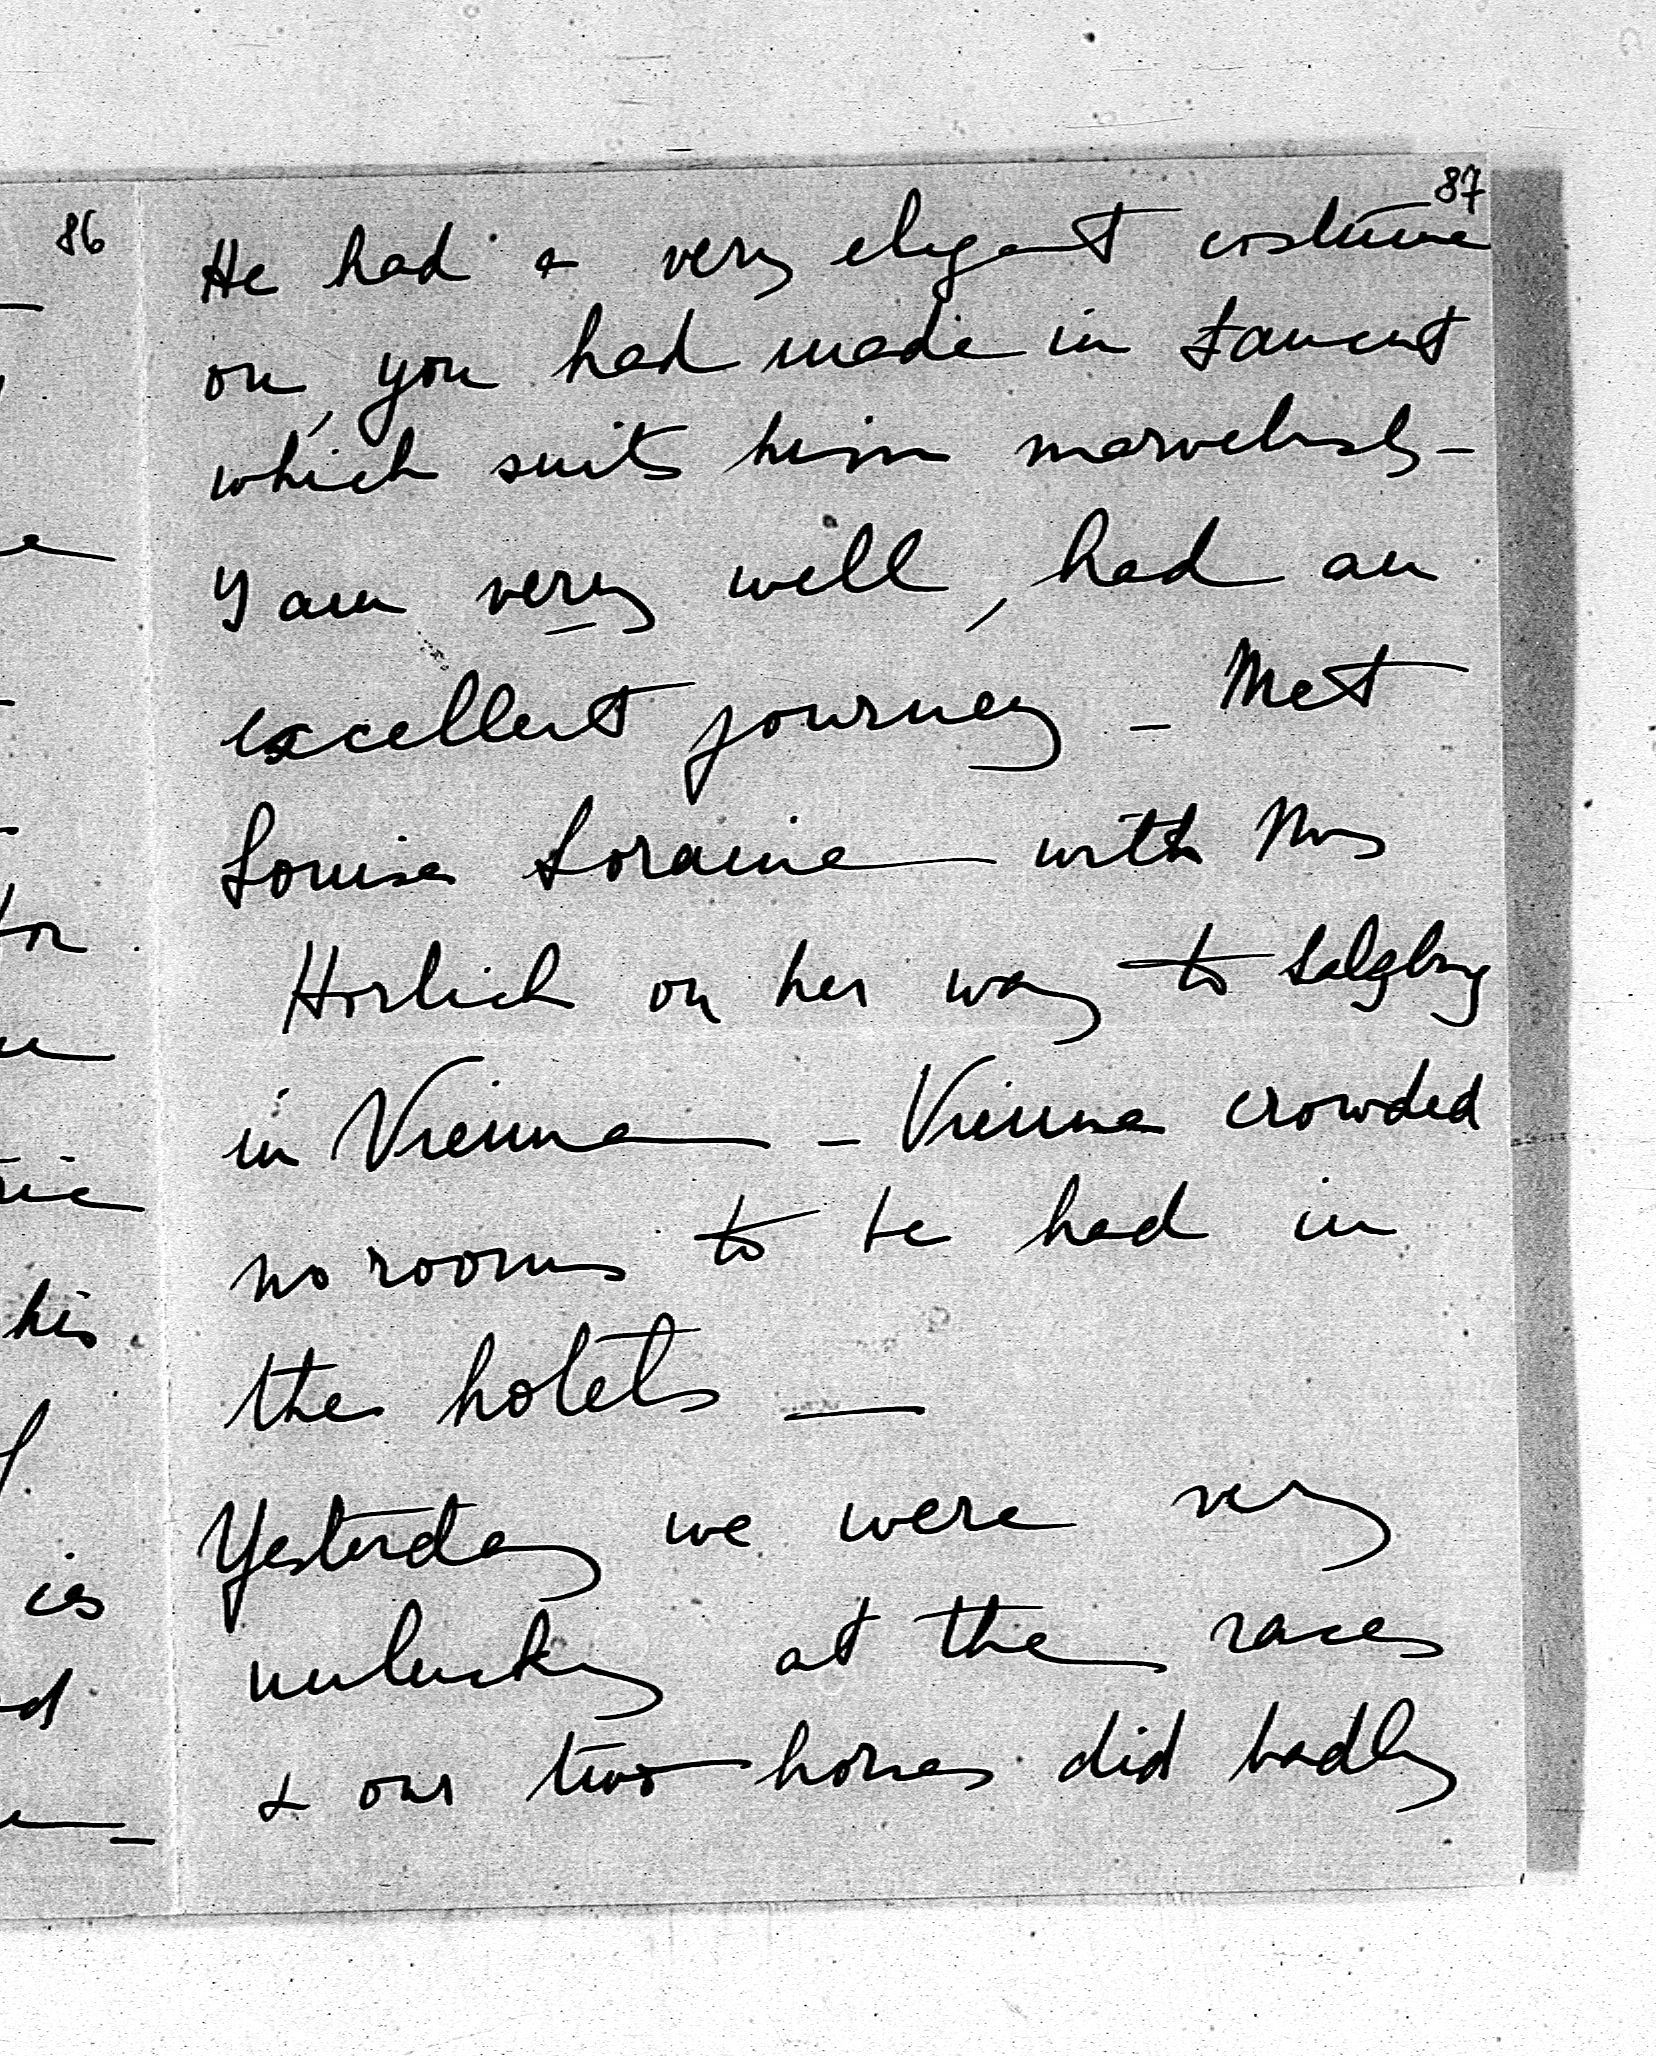 86
87
He had a very elegant costume
on, you had made in
which suits him marvelously -
I am very well, had an
excellent journey - Met
Louise Loraine with Mrs
Horlick on her way to Salzburg
in Vienna - Vienna crowded
no rooms to be had in
the hotels —
Yesterday we were very
unlucky at the races
& our two horses did badly
his
is